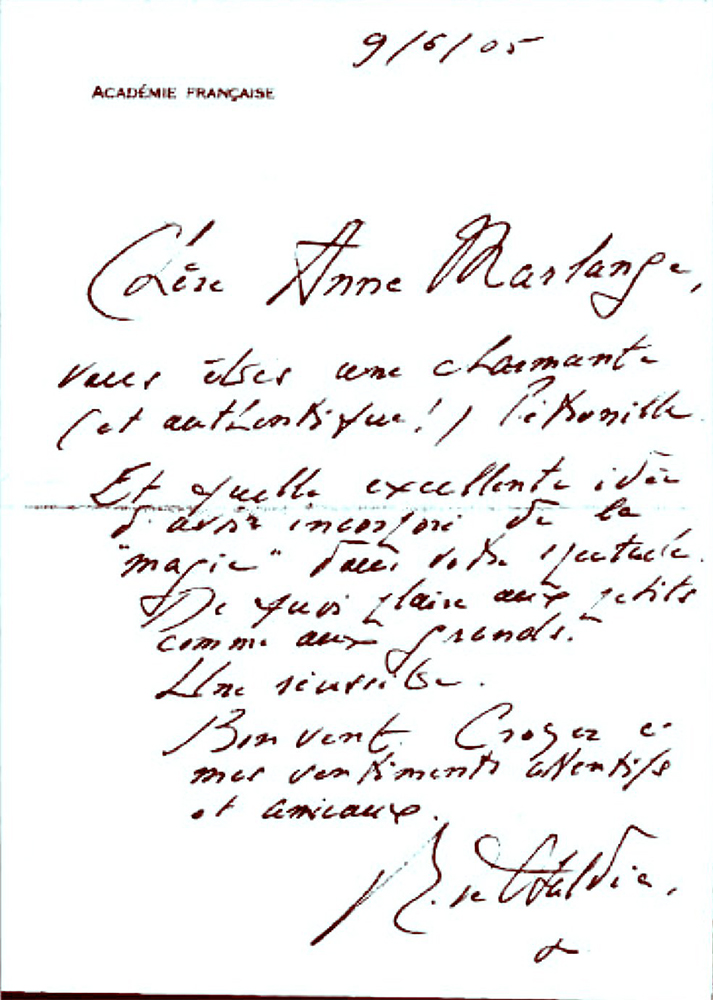 9/6/05
ACADÉMIE FRANÇAISE
Chère Anne Marlange,
vous êtes une charmante
(et authentique!) Pétronille.
Et quelle excellente idée
d'avoir incorporé de la
"magie" dans votre spectacle.
De quoi plaire aux petits
comme aux grands.
Une réussite.
Bon vent. Croyez à
mes sentiments attentifs
et amicaux.
R. de Obaldia,